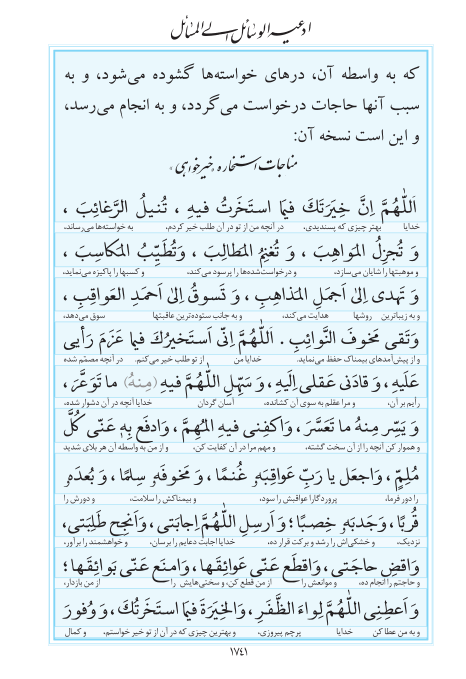 ادعیه الوسائل الی المسائل
که به واسطه آن، درهای خواسته‌ها گشوده می‌شود، و به
سبب آنها حاجات درخواست می‌گردد، و به انجام می‌رسد،
و این است نسخه آن:
مناجات استخاره «خیرخواهی»
اَللّٰهُمَّ اِنَّ خِیَرَتَكَ فیمَا اسْتَخَرْتُ فیهِ ، تُنیلُ الرَّغائِبَ ،
خدایا بهتر چیزی که پسندیدی، در آنچه من از تو در آن طلب خیر کردم، به خواسته‌ها می‌رساند،
وَ تُجْزِلُ المَواهِبَ ، وَ تُغْنِمُ المَطالِبَ ، وَتُطَیِّبُ المَکاسِبَ ،
و موهبتها را شایان می‌سازد، و درخواست‌شده‌ها را پرسود می‌کند، و کسبها را پاکیزه می‌نماید،
وَ تَهْدی اِلیٰ اَجمَلِ المَذاهِبِ ، وَ تَسوقُ اِلیٰ اَحمَدِ العَواقِبِ ،
و به زیباترین روشها هدایت می‌کند، و به جانب ستوده‌ترین عاقبتها سوق می‌دهد،
وَتَقی مَخوفَ النَّوائِبِ . اَللّٰهُمَّ اِنّی اَستَخیرُكَ فیما عَزَمَ رَأیی
و از پیش‌آمدهای بیمناک حفظ می‌نماید. خدایا من از تو طلب خیر می‌کنم. در آنچه مصمّم شده
عَلَیهِ ، وَ قادَنی عَقلی اِلَیهِ ، وَ سَهِّلِ اللّٰهُمَّ فیهِ (مِنهُ) ما تَوَعَّرَ ،
رأیم بر آن، و مرا عقلم به سوی آن کشانده، آسان گردان خدایا آنچه در آن دشوار شده،
وَ یَسِّر مِنهُ ما تَعَسَّرَ ، وَاکفِنی فیهِ المُهِمَّ ، وَادفَع بِهِ عَنّی کُلَّ
و هموار کن آنچه را از آن سخت گشته، و مهم مرا در آن کفایت کن، و از من به واسطه آن هر بلای شدید
مُلِمٍّ ، وَاجعَل یا رَبِّ عَواقِبَهو غُنمًا ، وَ مَخوفَهو سِلمًا ، وَ بُعدَهو
را دور فرما، پروردگارا عواقبش را سود، و بیمناکش را سلامت، و دورش را
قُربًا ، وَجَدبَهو خِصبًا ؛ وَ اَرسِلِ اللّٰهُمَّ اِجابَتی ، وَ اَنجِح طَلِبَتی ،
نزدیک، و خشکی‌اش را رشد و برکت قرار ده، خدایا اجابت دعایم را برسان، و خواهشمند را برآور،
وَاقضِ حاجَتی ، وَاقطَع عَنّی عَوائِقَها ، وَامنَع عَنّی بَوائِقَها ؛
و حاجتم را انجام ده، و موانعش را از من قطع کن، و سختی‌هایش را از من بازدار،
وَ اَعطِنِی اللّٰهُمَّ لِواءَ الظَّفَرِ ، وَالخِیَرَةَ فیمَا استَخَرتُكَ ، وَ وُفورَ
و به من عطا کن خدایا پرچم پیروزی، و بهترین چیزی که در آن از تو خیر خواستم، و کمال
١٧٤١